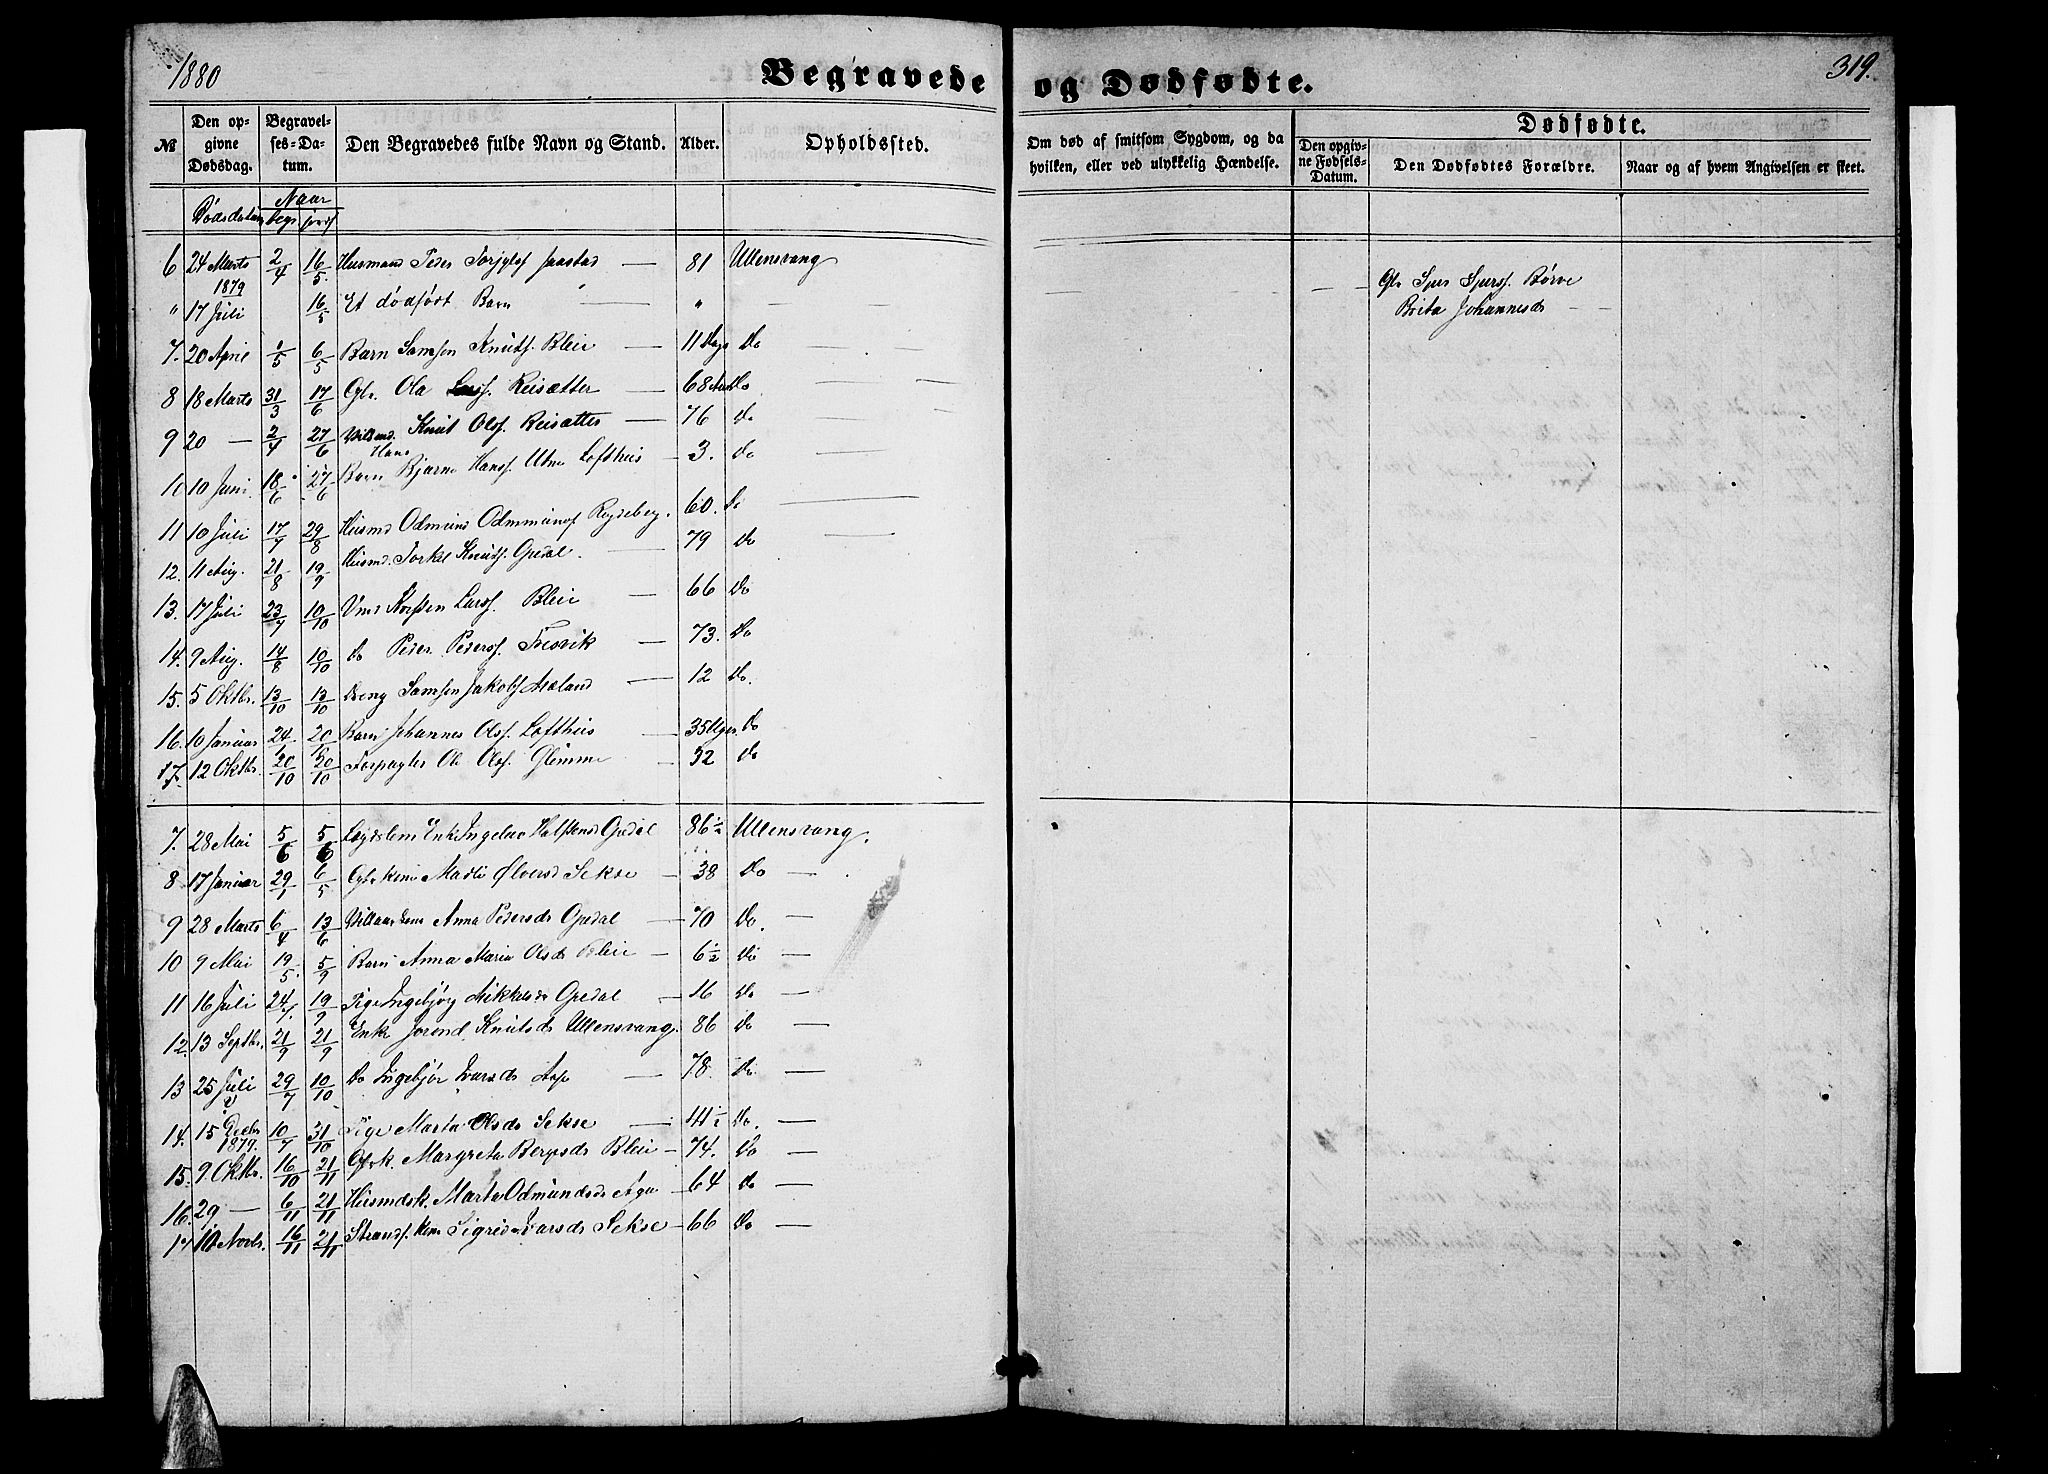 1880
Begravede og Dødfødte.
319.
№
Den opgivne Dødsdag.
Begravelses-Datum.
Den Begravedes fulde Navn og Stand.
Alder.
Opholdssted.
Om død af smitsom Sygdom, og da hvilken, eller ved ulykkelig Hændelse.
Dødfødte.
Den opgivne Fødsels-Datum.
Den Dødfødtes Forældre.
Naar og af hvem Angivelsen er skeet.
Naar
Dødsdatum begr jordf
6 24 Marts 2/4 16/5 Husmand Peder Torjylsf Jaastad — 81 Ullensvang
" 1879 17 Juli 16/5 Et dødfødt Barn — " — — Gbr Sjur Sjurss. Børve
Brita Johannesdr —
7. 20 April 1/5 6/5 Barn Samson Knuts. Bleie — 11 Dage Do
8 18 Marts 31/3 17/6 Gbr. Ola Larss. Reisæter — 68 Do
9 20 — 2/4 27/6 Knut Olss. Reisæter — 76 Do
10 10 Juni 18/6 27/6 Barn Hans Bjarne Hanss. Utne Lofthus — 3. Do
11 10 Juli 17/7 29/8 Husmd Odmund Odmmundsf 60. Do
12. 11 Aug. 21/8 19/9 Husmd. Torkel Knuts. Opedal. — 79 Do
13. 17 Juli 23/7 10/10 Larss. Bleie — 66 Do
14. 9 Aug. 14/8 10/10 Do Peder Peders. Fresvik — 73. Do
15. 5 Oktbr. 13/10 13/10 Dreng Samson Jakobs Mæland — 12 Do.
16. 10 Januar 24/1 20/10 Barn Johannes Olss. Lofthus — 35 Uger Do
17. 12 Oktbr. 20/10 20/10 Forpagter Ole Olss. Glemme — 52 Do
7. 28 Mai 5/6 5/6 Lægdslem Enke Ingeleiv Halstensd Opedal 86½ Ullensvang.
8 17 Januar 29/1 6/5 Gbrkone Madli Ølversd Sekse — 38 Do —
9 28 Marts 6/4 13/6 Anna Pedersdr Opedal — 70 Do. —
10 9 Mai 19/5. 5/9 Barn Anna Maria Olsdr Bleie — 6½ Do —
11 16 Juli 24/7. 19/9 Pige Ingebjørg Mikkelsdr Opedal — 16 Do —
12. 13 Septbr. 21/9 21/9 Enke Jorend Knutsdr Ullensvang. 86 Do —
13 25 Juli 29/7 10/10 Do Ingebjør Ivarsdr — 78. Do —
14. 15 Decbr 1879. 10/7 31/10 Pige Marta Olsdr Sekse — Do. —
15. 9 Oktbr. 16/10 21/11 Margreta Bergesdr Bleie — 74. Do —
16. 29 — 6/11 21/11 Husmdsk. Marta Odmundsdr Aga — 64 Do —
17 10 Novbr. 16/11 21/11 Sigrid Ivarsdr Sekse — 66 Do —